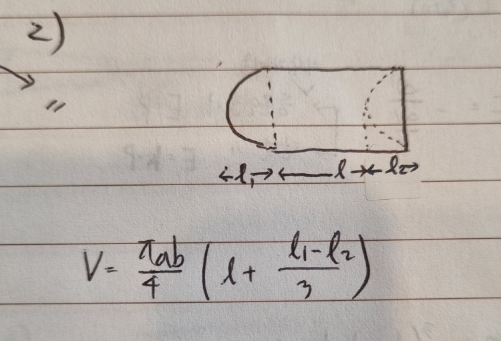 2)
"
l₁ l l₂
V = πab/4 ( l + l₁-l₂/3 )